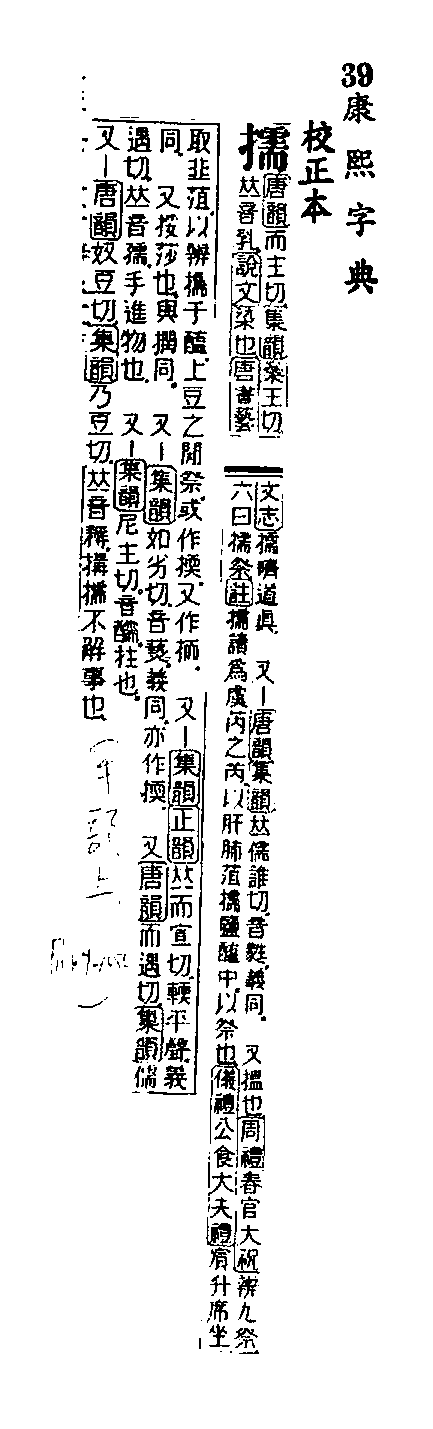 39 康熙字典
校正本
擩
唐韻而主切集韻蘂主切
𠀤音乳說文染也唐書藝
文志擩嚌道眞 又—唐韻集韻𠀤儒誰切音甤義同 又搵也周禮春官大祝辨九祭
六曰擩祭註擩讀爲虞芮之芮以肝肺菹擩鹽醢中以祭也儀禮公食大夫禮賓升席坐
取韭菹以辨擩于醢上豆之閒祭或作㨎又作抐 又—集韻正韻𠀤而宣切輭平聲義
同 又挼莎也與撋同 又—集韻如劣切音爇義同亦作㨎 又唐韻而遇切集韻儒
遇切𠀤音孺手進物也 又—集韻尼主切音醹拄也
又—唐韻奴豆切集韻乃豆切𠀤音耨搆擩不解事也